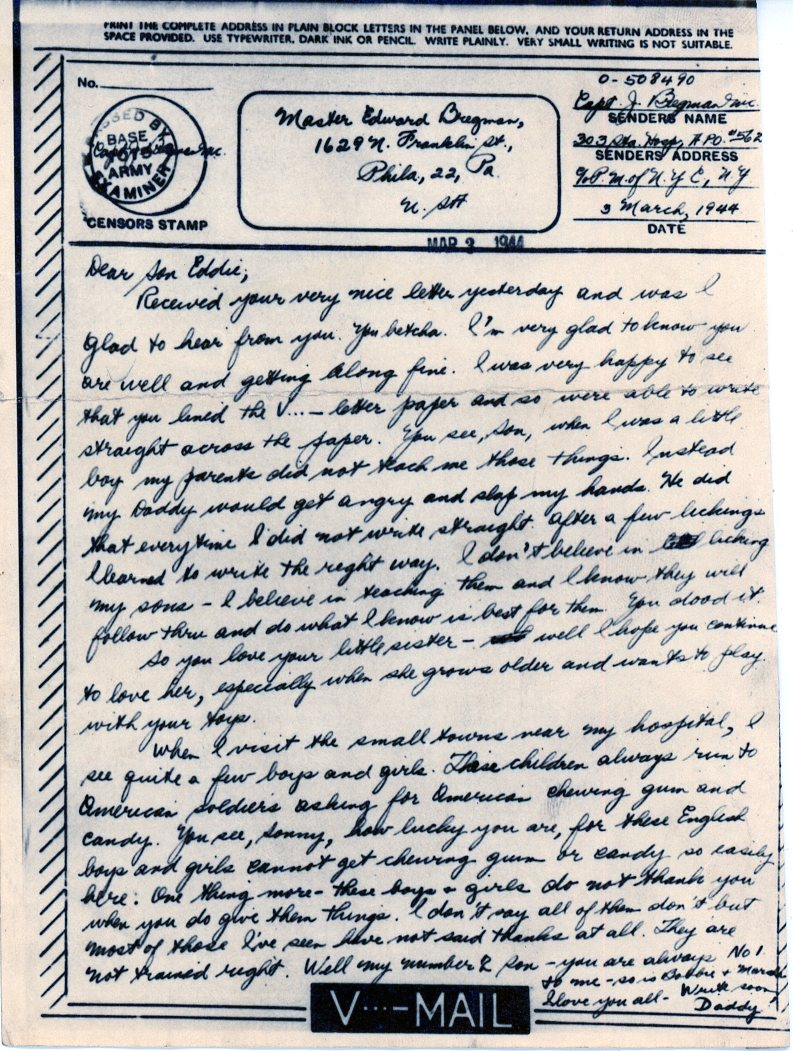 PRINT THE COMPLETE ADDRESS IN PLAIN BLOCK LETTERS IN THE PANEL BELOW, AND YOUR RETURN ADDRESS IN THE
SPACE PROVIDED. USE TYPEWRITER, DARK INK OR PENCIL. WRITE PLAINLY. VERY SMALL WRITING IS NOT SUITABLE.
No.
PASSED BY
BASE
1078
ARMY
EXAMINER
CENSORS STAMP
Master Edward Bregman,
1629 N. Franklin St.,
Phila, 22, Pa.
U. SA
0-508490
Capt. J. Bregman MC.
SENDERS NAME
303 Sta. Hosp, APO. #562
SENDERS ADDRESS
%P.M. of N.Y.C, N.Y
3 March, 1944
DATE
MAR 3 1944
Dear Son Eddie,
Received your very nice letter yesterday and was I
glad to hear from you. You betcha. I'm very glad to know you
are well and getting along fine. I was very happy to see
that you lined the V...- letter paper and so were able to write
straight across the paper. You see, Son, when I was a little
boy my parents did not teach me those things. Instead
my Daddy would get angry and slap my hands. He did
that everytime I did not write straight. After a few lickings
I learned to write the right way. I don't believe in licking
my sons - I believe in teaching them and I know they will
follow thru and do what I know is best for them. You dood it.
So you love your little sister - well I hope you continue
to love her, especially when she grows older and wants to play
with your toys.
When I visit the small towns near my hospital, I
see quite a few boys and girls. These children always run to
American soldiers asking for American chewing gum and
candy. You see, Sonny, how lucky you are, for these English
boys and girls cannot get chewing gum or candy so easily
here. One thing more - these boys + girls do not thank you
when you do give them things. I don't say all of them don't but
most of those I've seen have not said thanks at all. They are
not trained right. Well my number 2 son - you are always No 1
to me - so is Bobbie + Marsha
I love you all - Write soon
Daddy
V...-MAIL